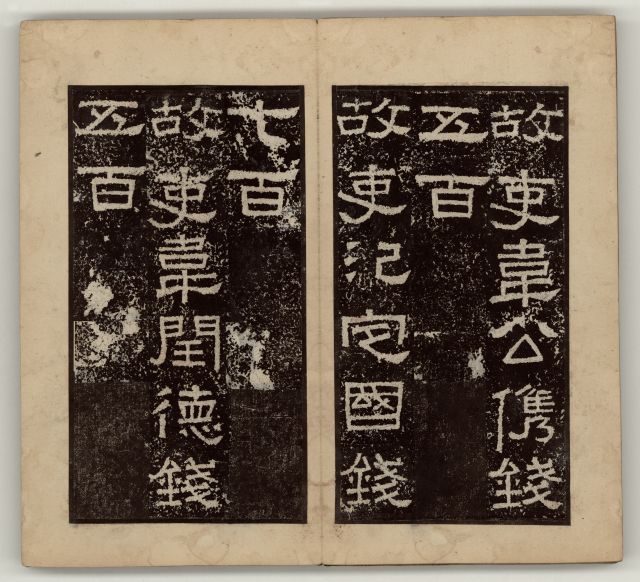 故吏韋公儁錢
五百
故吏氾定國錢
七百
故吏韋閏德錢
五百